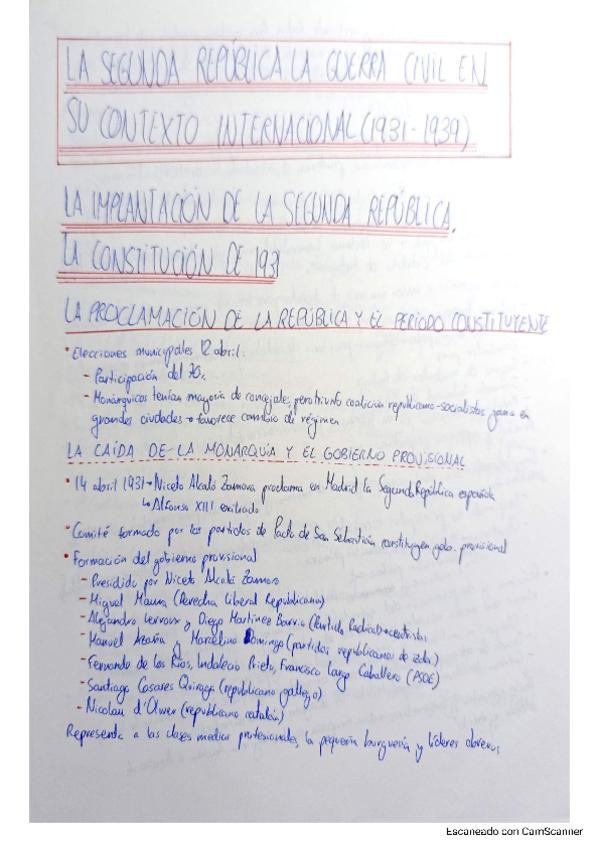 LA SEGUNDA REPÚBLICA LA GUERRA CIVIL EN
SU CONTEXTO INTERNACIONAL (1931-1939)
LA IMPLANTACIÓN DE LA SEGUNDA REPÚBLICA.
LA CONSTITUCIÓN DE 1931
LA PROCLAMACIÓN DE LA REPÚBLICA Y EL PERÍODO CONSTITUYENTE
• Elecciones municipales 12 abril:
- Participación del
- Monárquicos tenían mayoría de concejales, pero triunfo coalición republicano-socialistas gana en
grandes ciudades → favorece cambio de régimen
LA CAÍDA DE LA MONARQUÍA Y EL GOBIERNO PROVISIONAL
• 14 abril 1931 → Niceto Alcalá Zamora proclama en Madrid la Segunda República española
↳ Alfonso XIII exiliado
• Comité formado por los partidos de Pacto de San Sebastián constituyen gob. provisional
• Formación del gobierno provisional
- Presidido por Niceto Alcalá Zamora
- Miguel Maura (Derecha Liberal Republicana)
- Alejandro Lerroux y Diego Martínez Barrio (Partido Radical)
- Manuel Azaña y Marcelino Domingo (partidos republicanos de izda)
- Fernando de los Ríos, Indalecio Prieto, Francisco Largo Caballero (PSOE)
- Santiago Casares Quiroga (republicano gallego)
- Nicolau d'Olwer (republicano catalán)
Representa a las clases medias profesionales, la pequeña burguería y líderes obreros
Escaneado con CamScanner